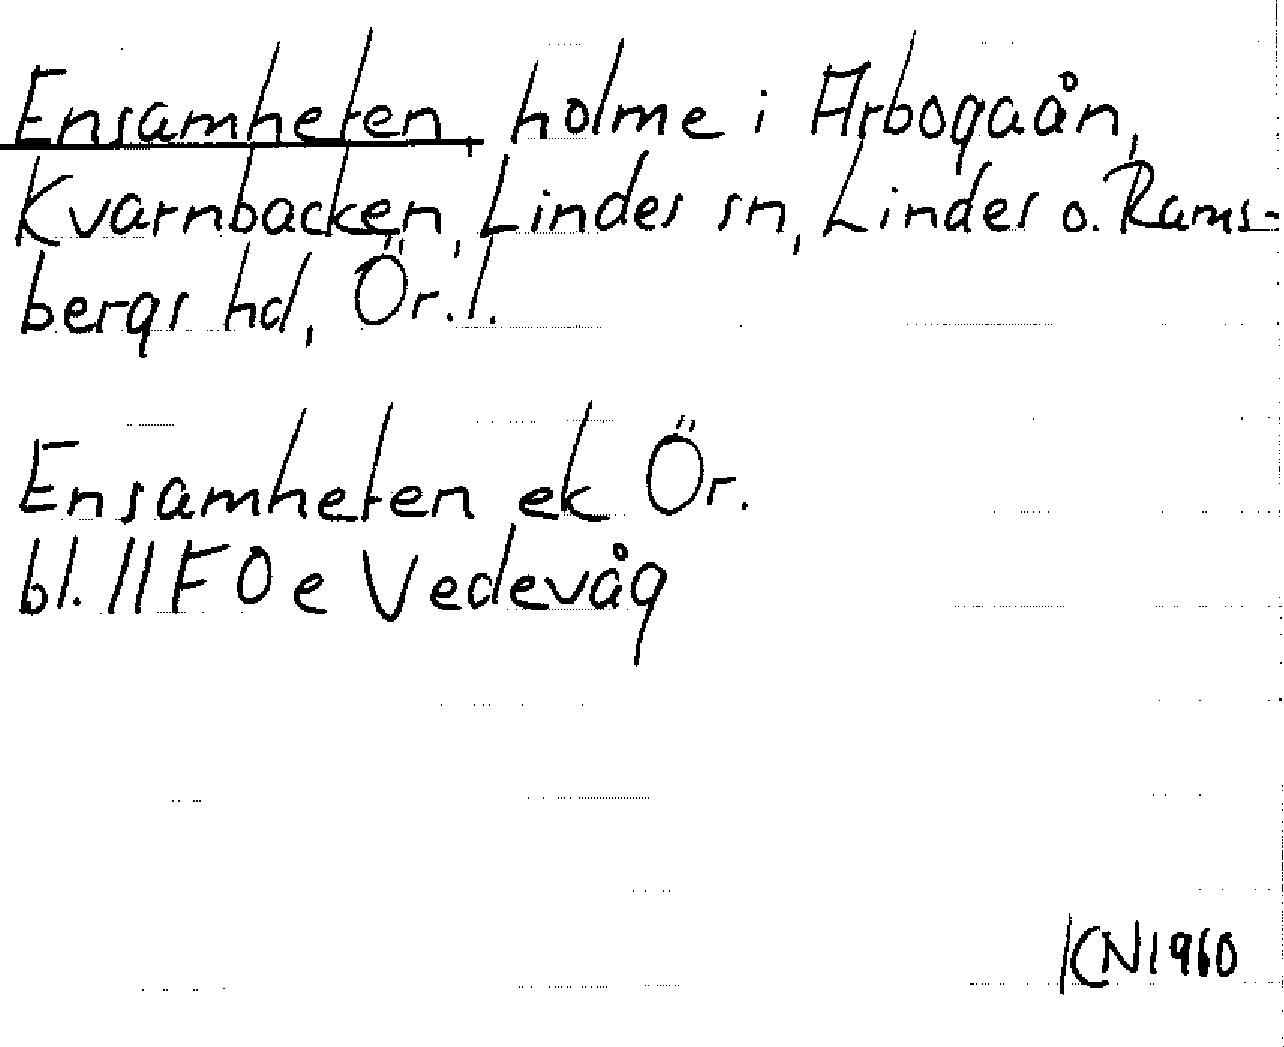 Ensamheten, holme i Arbogaån,
Kvarnbacken, Lindes sn, Lindes o. Rams-
bergs hd, Ör.l.
Ensamheten ek Ör.
bl. 11 F 0 e Vedevåg
KN1960